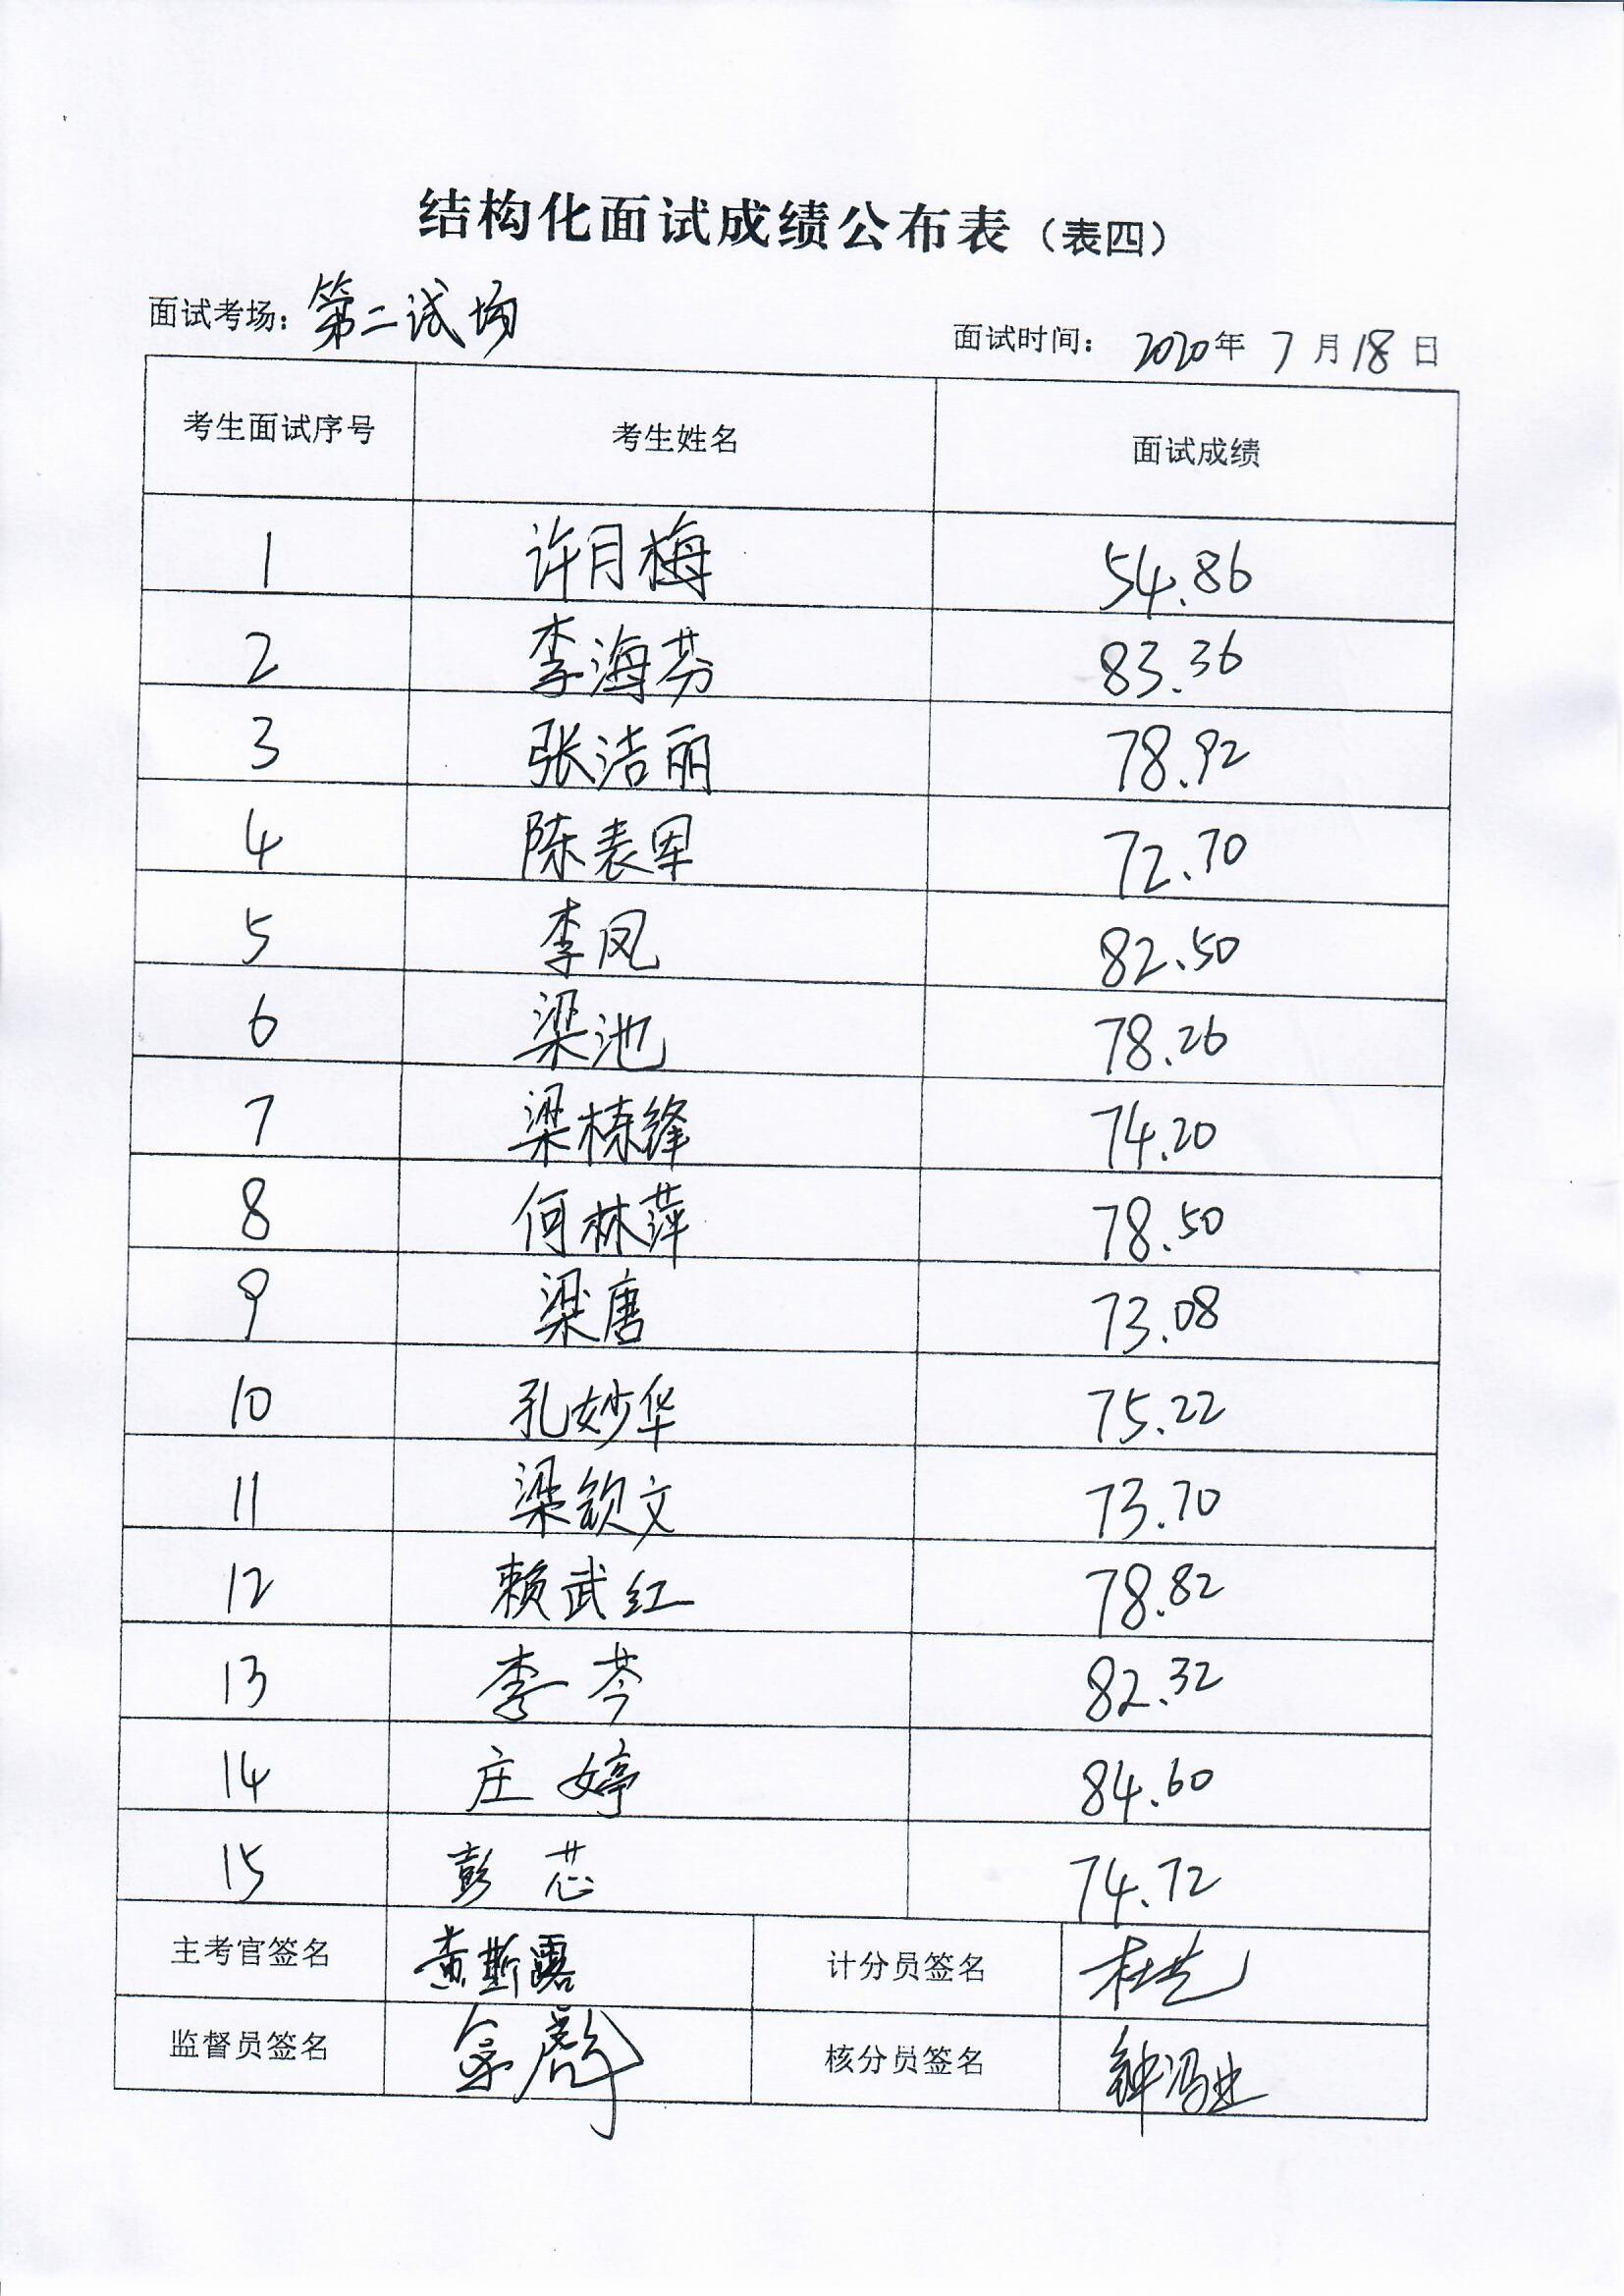 结构化面试成绩公布表（表四）
面试考场：第二试场
面试时间： 2020年 7 月 18 日
考生面试序号 考生姓名 面试成绩
1 许月梅 54.86
2 李海芬 83.36
3 张洁丽 78.92
4 陈表军 72.70
5 李凤 82.50
6 梁池 78.26
7 梁栋锋 74.20
8 何林萍 78.50
9 梁唐 73.08
10 孔妙华 75.22
11 梁钦文 73.70
12 赖武红 78.82
13 李芩 82.32
14 庄婷 84.60
15 彭芯 74.72
主考官签名 黄斯露 计分员签名
监督员签名 核分员签名